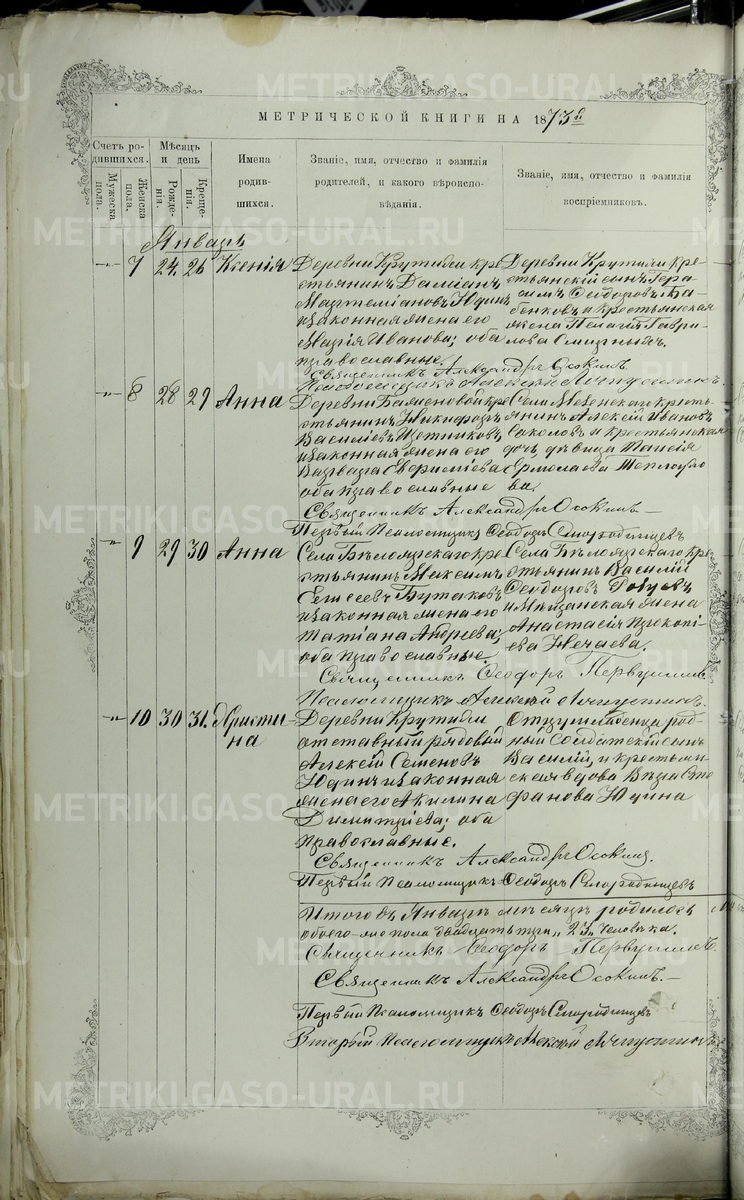 МЕТРИЧЕСКОЙ КНИГИ НА 1873й
Счетъ ро-
дившихся.
Мужеска
пола.
Женска
пола.
Мѣсяцъ
и день
Рожде-
нія.
Креще-
нія.
Имена
родив-
шихся.
Званіе, имя, отчество и фамилія
родителей, и какого вѣроиспо-
вѣданія.
Званіе, имя, отчество и фамилія
воспріемниковъ.
Январь
7 24 26 Ксенія
Деревни Крутихи кре
стьянинъ Даміанъ
Юдинъ
и законная жена его
Марія Иванова; оба
православные.
Деревни Крутихи кре-
стьянскій сынъ Гера
симъ Ѳеодоровъ Ба-
бенковъ и крестьянская
жена Пелагія Гаври-
лова
Священникъ Александръ Осокинъ.
Псаломщикъ Алексѣй
8 28 29 Анна
Деревни кре
стьянинъ Никифоръ
Василіевъ Щетниковъ
и законная жена его
Варвара
оба православные
Села кресть
янинъ Алексій Ивановъ
Соколовъ и крестьянская
дочь дѣвица Таисія
Ермолаева Теплоухо
ва.
Священникъ Александръ Осокинъ.—
Первый Псаломщикъ Ѳеодоръ Смородинцевъ
9 29 30 Анна
Села Бѣлоярскаго кре
стьянинъ Максимъ
Бутаковъ
и законная жена его
Татіана Андреева;
оба православные.
Села Бѣлоярскаго кре
стьянинъ Василій
Ѳеодоровъ
и Мѣщанская жена
Анастасія Прокопі-
ева Нечаева.
Священникъ Ѳеодоръ Первушинъ
Псаломщикъ Алексѣй
10 30 31 Христи-
на
Деревни Крутихи
отставный рядовый
Алексій Семеновъ
Юдинъ и законная
жена его Акилина
Димитріева; оба
православные.
род-
ный солдатскій сынъ
Василій, и крестьян-
ская вдова Вѣра Сте
фанова Юдина
Священникъ Александръ Осокинъ.
Первый Псаломщикъ Ѳеодоръ Смородинцевъ
Итого въ Январѣ мѣсяцѣ родилось
обоего пола двадцать три „23„ человѣка.
Священникъ Ѳеодоръ Первушинъ
Священникъ Александръ Осокинъ.—
Первый Псаломщикъ Ѳеодоръ Смородинцевъ
Вторый Псаломщикъ Алексѣй
METRIKI.GASO-URAL.RU